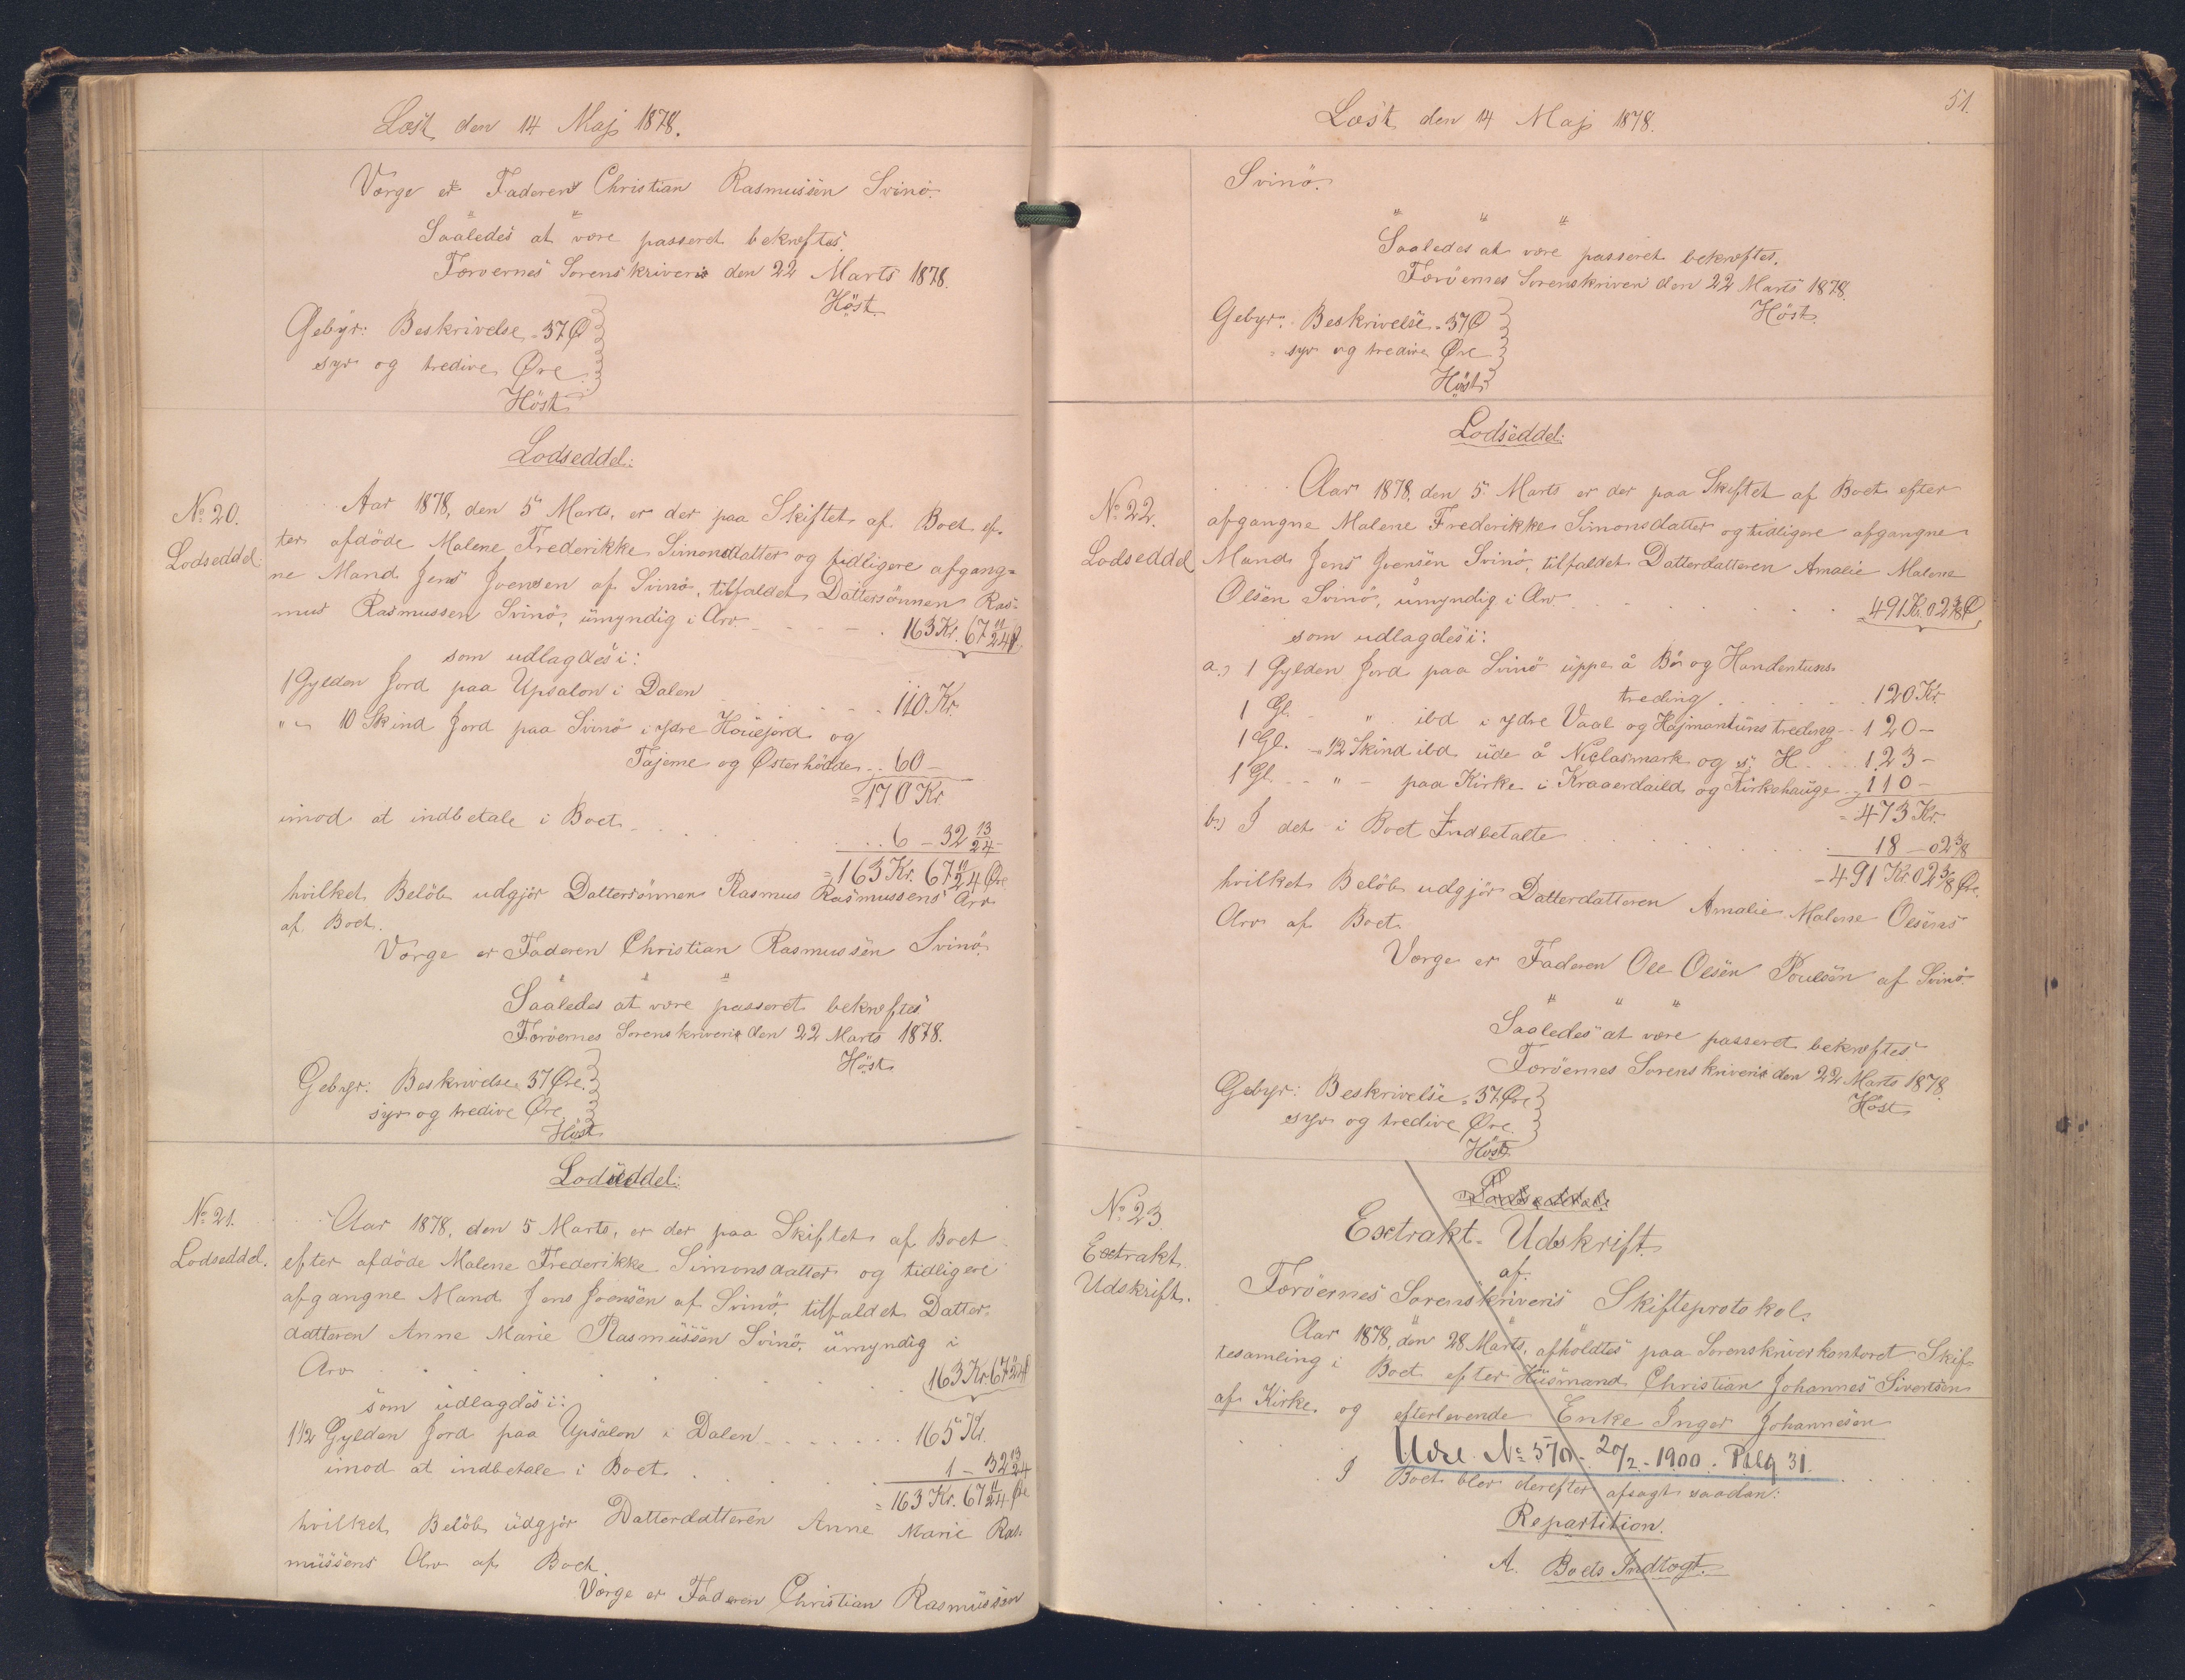 Læst den 14 Maj 1878.
Værge er Faderen Christian Rasmussen Svinö.
" "
Saaledes at være passeret bekræftes.
Færöernes Sorenskriveri den 22 Marts 1878.
Höst.
Gebyr: Beskrivelse = 37 Ø
syv og tredive Øre
Höst
Lodseddel:
No 20.
Lodseddel.
Aar 1878, den 5 Marts, er der paa Skiftet af Boet ef-
ter afdöde Malene Frederikke Simonsdatter og tidligere afgang-
ne Mand Jens Joensen af Svinö, tilfaldet Dattersönnen Ras-
mus Rasmussen Svinö, umyndig i Arv 163 Kr. 67 11/24 Ø.
som udlagdes i:
1 Gylden Jord paa Upsalon i Dalen 110 Kr.
" - 10 Skind Jord paa Svinö i ydre Houejord og
Tajerne og Østerhödde 60 -
= 170 Kr
imod at indbetale i Boet 6 - 32 13/24
= 163 Kr. 67 11/24 Øre
hvilket Belöb udgjör Dattersönnen Rasmus Rasmussens Arv
af Boet.
Værge er Faderen Christian Rasmussen Svinö.
" " "
Saaledes at være passeret bekræftes
Færöernes Sorenskriveri den 22 Marts 1878.
Höst
Gebyr: Beskrivelse 37 Øre.
syv og tredive Øre
Höst
Lodseddel:
No 21.
Lodseddel.
Aar 1878, den 5 Marts, er der paa Skiftet af Boet
efter afdöde Malene Frederikke Simonsdatter og tidligere
afgangne Mand Jens Joensen af Svinö, tilfaldet Datter-
datteren Anne Marie Rasmussen Svinö, umyndig i
Arv 163 Kr 67 11/24 Ø
som udlagdes i:
1 1/2 Gylden Jord paa Upsalon i Dalen 165 Kr.
imod at indbetale i Boet 1 - 32 13/24
= 163 Kr. 67 11/24 Øre
hvilket Belöb udgjör Datterdatteren Anne Marie Ras-
mussens Arv af Boet.
Værge er Faderen Christian Rasmussen
51.
Læst den 14 Maj 1878.
Svinö.
" " "
Saaledes at være passeret bekræftes.
Færöernes Sorenskriveri den 22 Marts 1878.
Höst.
Gebyr: Beskrivelse = 37 Ø
= syv og tredive Øre
Höst
Lodseddel:
No 22.
Lodseddel
Aar 1878, den 5 Marts er der paa Skiftet af Boet efter
afgangne Malene Frederikke Simonsdatter og tidligere afgangne
Mand Jens Joensen Svinö, tilfaldet Datterdatteren Amalie Malene
Olsen Svinö, umyndig i Arv 491 Kr. 02 3/8 Ø
som udlagdes i:
a.) 1 Gylden Jord paa Svinö uppe å Bö og Handentuns-
treding 120 Kr
1 Gl. - " ibd i ydre Vaal og Højmantuns treding 120 -
1 Gl. - 12 Skind ibd. ude å Niclasmark og s. H 123 -
1 Gl. - " - paa Kirke i Kraaerdaild og Kirkshauge 110 -
= 473 Kr.
b.) I det i Boet Indbetalte 18 - 02 3/8
= 491 Kr 02 3/8 Øre
hvilket Belöb udgjör Datterdatteren Amalie Malene Olsens
Arv af Boet
Værge er Faderen Ole Olsen Poulsen af Svinö
" " "
Saaledes at være passeret bekræftes.
Færöernes Sorenskriveri den 22 Marts 1878.
Höst
Gebyr: Beskrivelse = 37 Øre
syv og tredive Øre
Höst
Lodseddel:
No 23.
Extrakt
Udskrift.
Extrakt-Udskrift
af
Færöernes Sorenskriveris Skifteprotokol.
Aar 1878, den 28 Marts, afholdtes paa Sorenskriverkontoret Skif-
tesamling i Boet efter Husmand Christian Johannes Sivertsen
af Kirke og efterlevende Enke Inger Johannesen
Udsl. No 570 - 20/2 - 1900. Pblg 31.
I Boet blev derefter afsagt saadan:
Repartition.
A. Boets Indtægt.